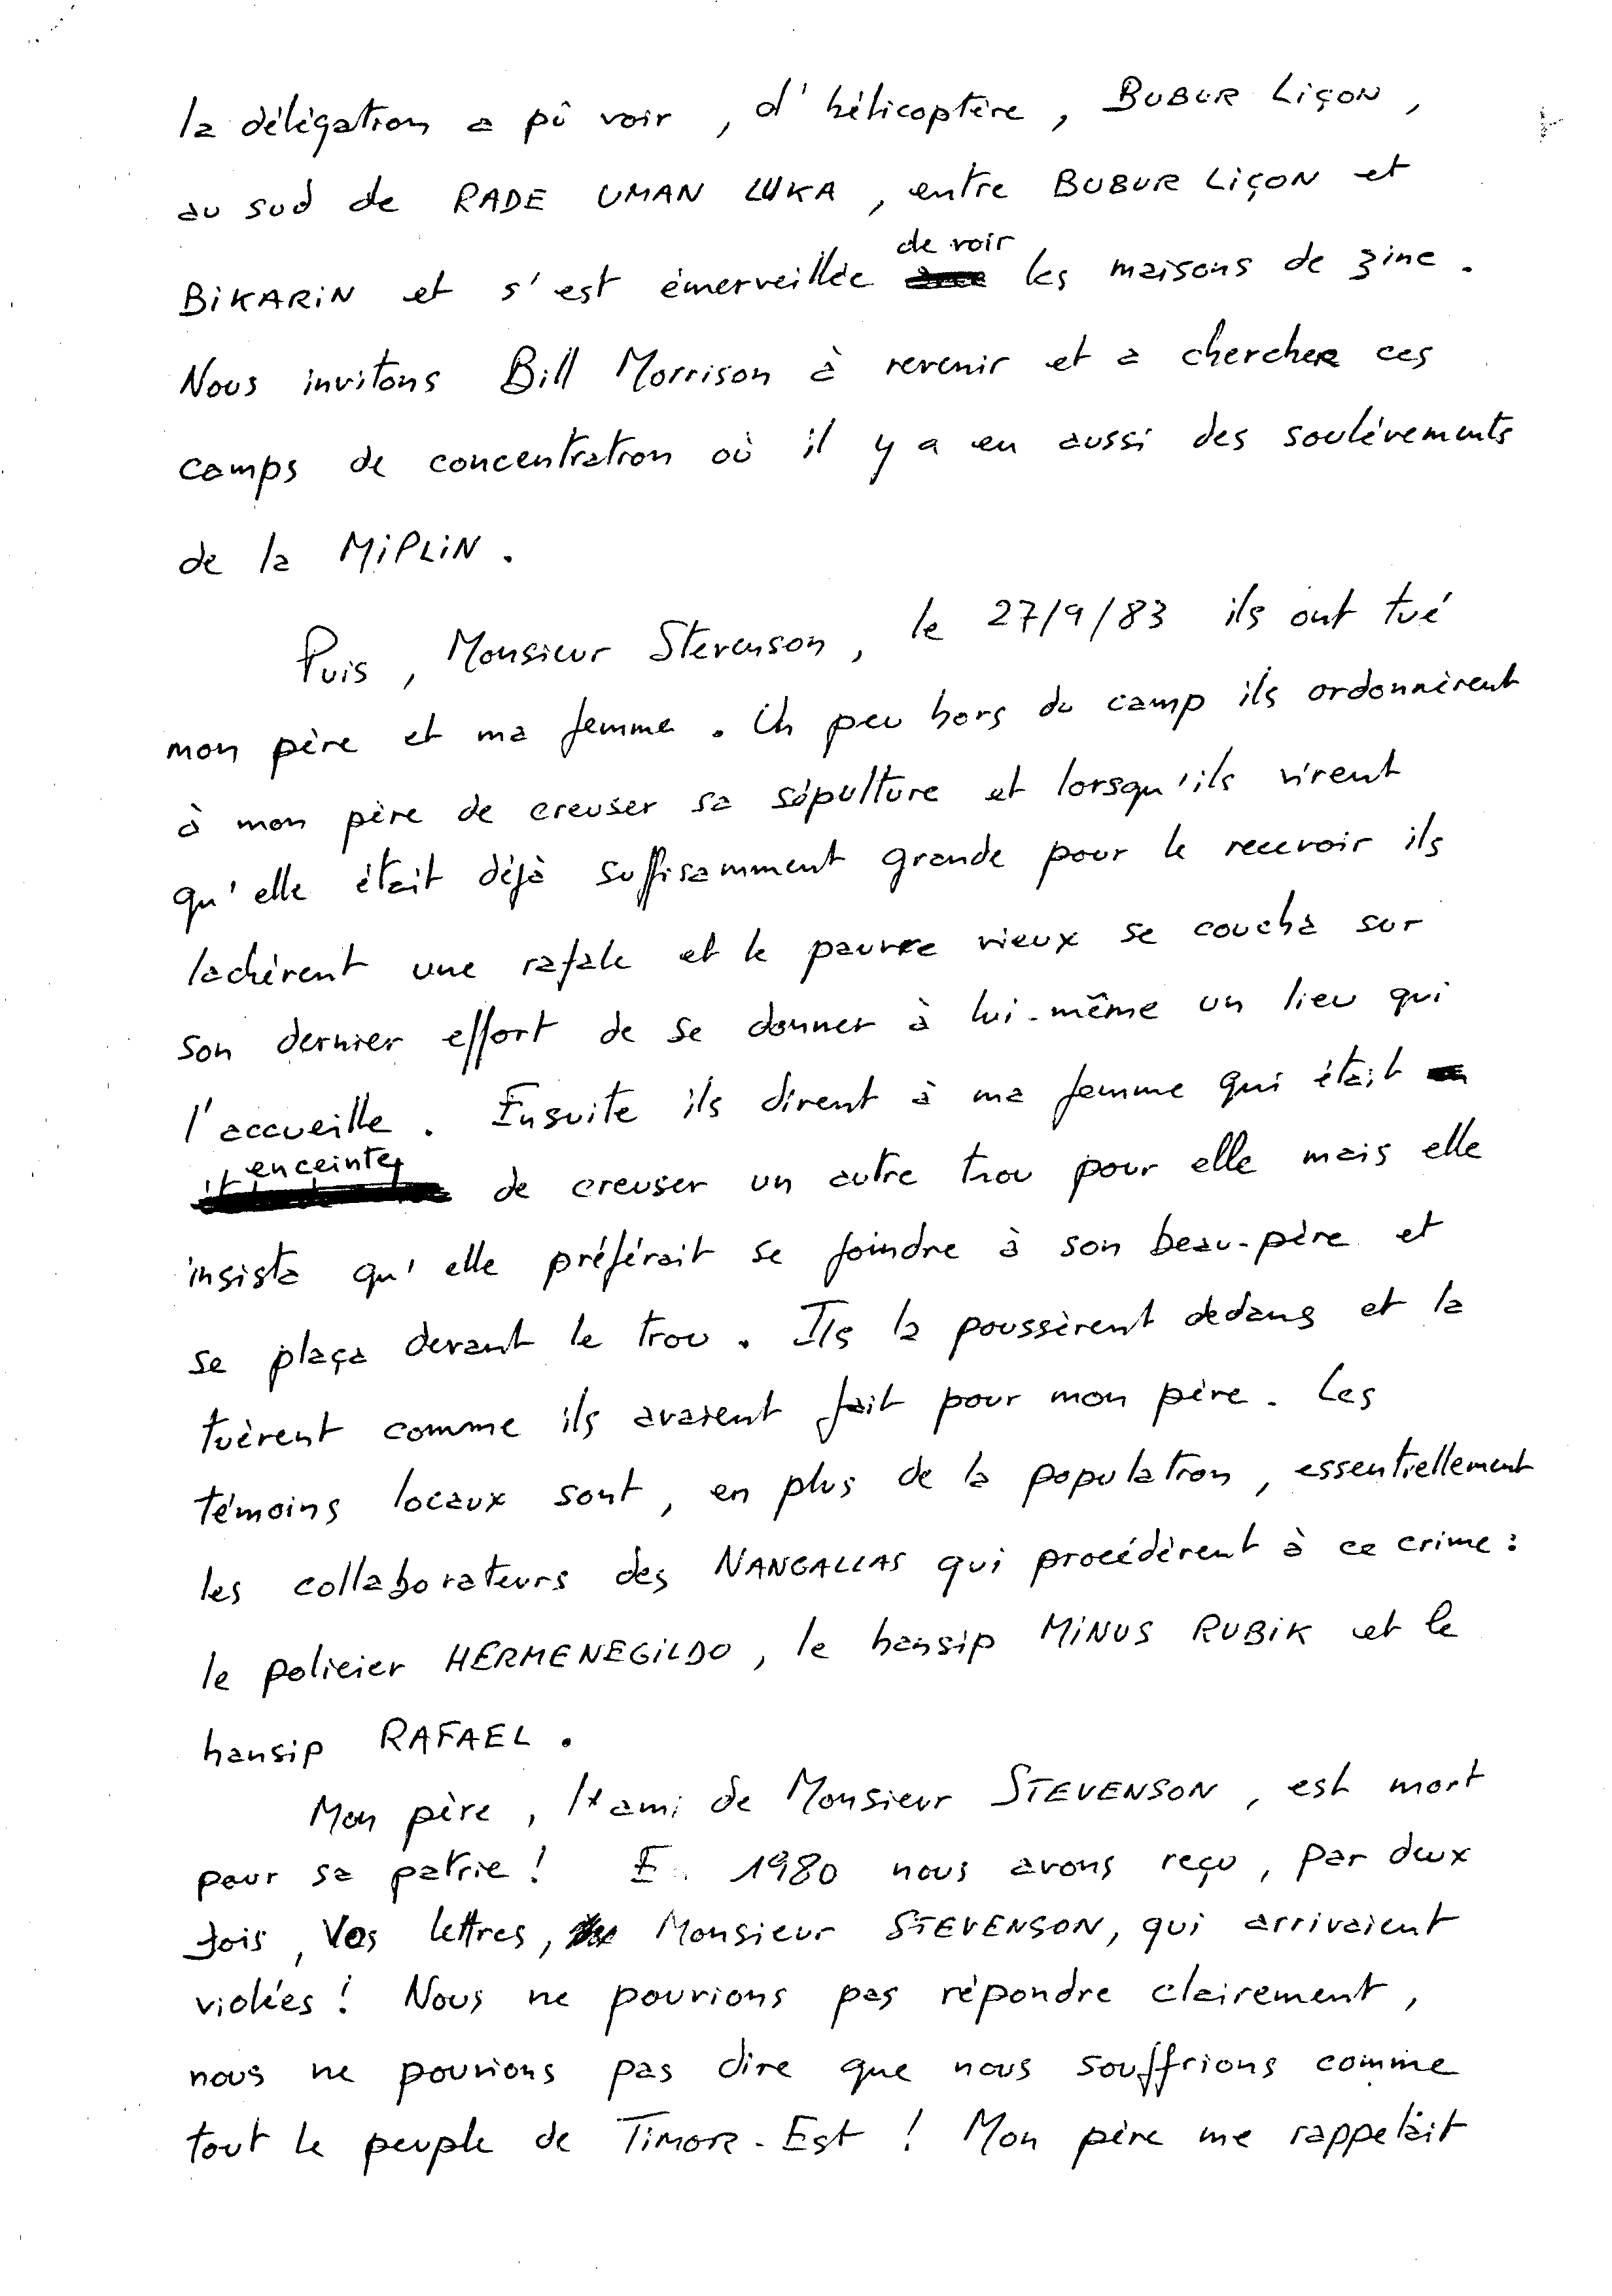 la délégation a pû voir, d'hélicoptère, BUBUR LiÇON,
au sud de RADE UMAN LUKA, entre BUBUR LiÇON et
BiKARiN et s'est émerveillée de voir les maisons de zinc.
Nous invitons Bill Morrison à revenir et a chercher ces
camps de concentration où il y a eu aussi des soulèvements
de la MiPLiN.
Puis, Monsieur Stevenson, le 27/9/83 ils ont tué
mon père et ma femme. Un peu hors du camp ils ordonnèrent
à mon père de creuser sa sépulture et lorsqu'ils virent
qu'elle était déjà suffisamment grande pour le recevoir ils
lachèrent une rafale et le pauvre vieux se coucha sur
son dernier effort de se donner à lui-même un lieu qui
l'accueille. Ensuite ils dirent à ma femme qui était
enceinte, de creuser un autre trou pour elle mais elle
insista qu'elle préférait se joindre à son beau-père et
se plaça devant le trou. Ils la poussèrent dedans et la
tuèrent comme ils avaient fait pour mon père. Les
témoins locaux sont, en plus de la population, essentiellement
les collaborateurs des NANGALLAS qui procédèrent à ce crime :
le policier HERMENEGiLDO, le hansip MiNUS RUBiK et le
hansip RAFAEL.
Mon père, l'ami de Monsieur STEVENSON, est mort
pour sa patrie ! E. 1980 nous avons reçu, par deux
fois, Vos lettres, Monsieur STEVENSON, qui arrivaient
violées ! Nous ne pouvions pas répondre clairement,
nous ne pouvions pas dire que nous souffrions comme
tout le peuple de TiMOR-Est ! Mon père me rappelait